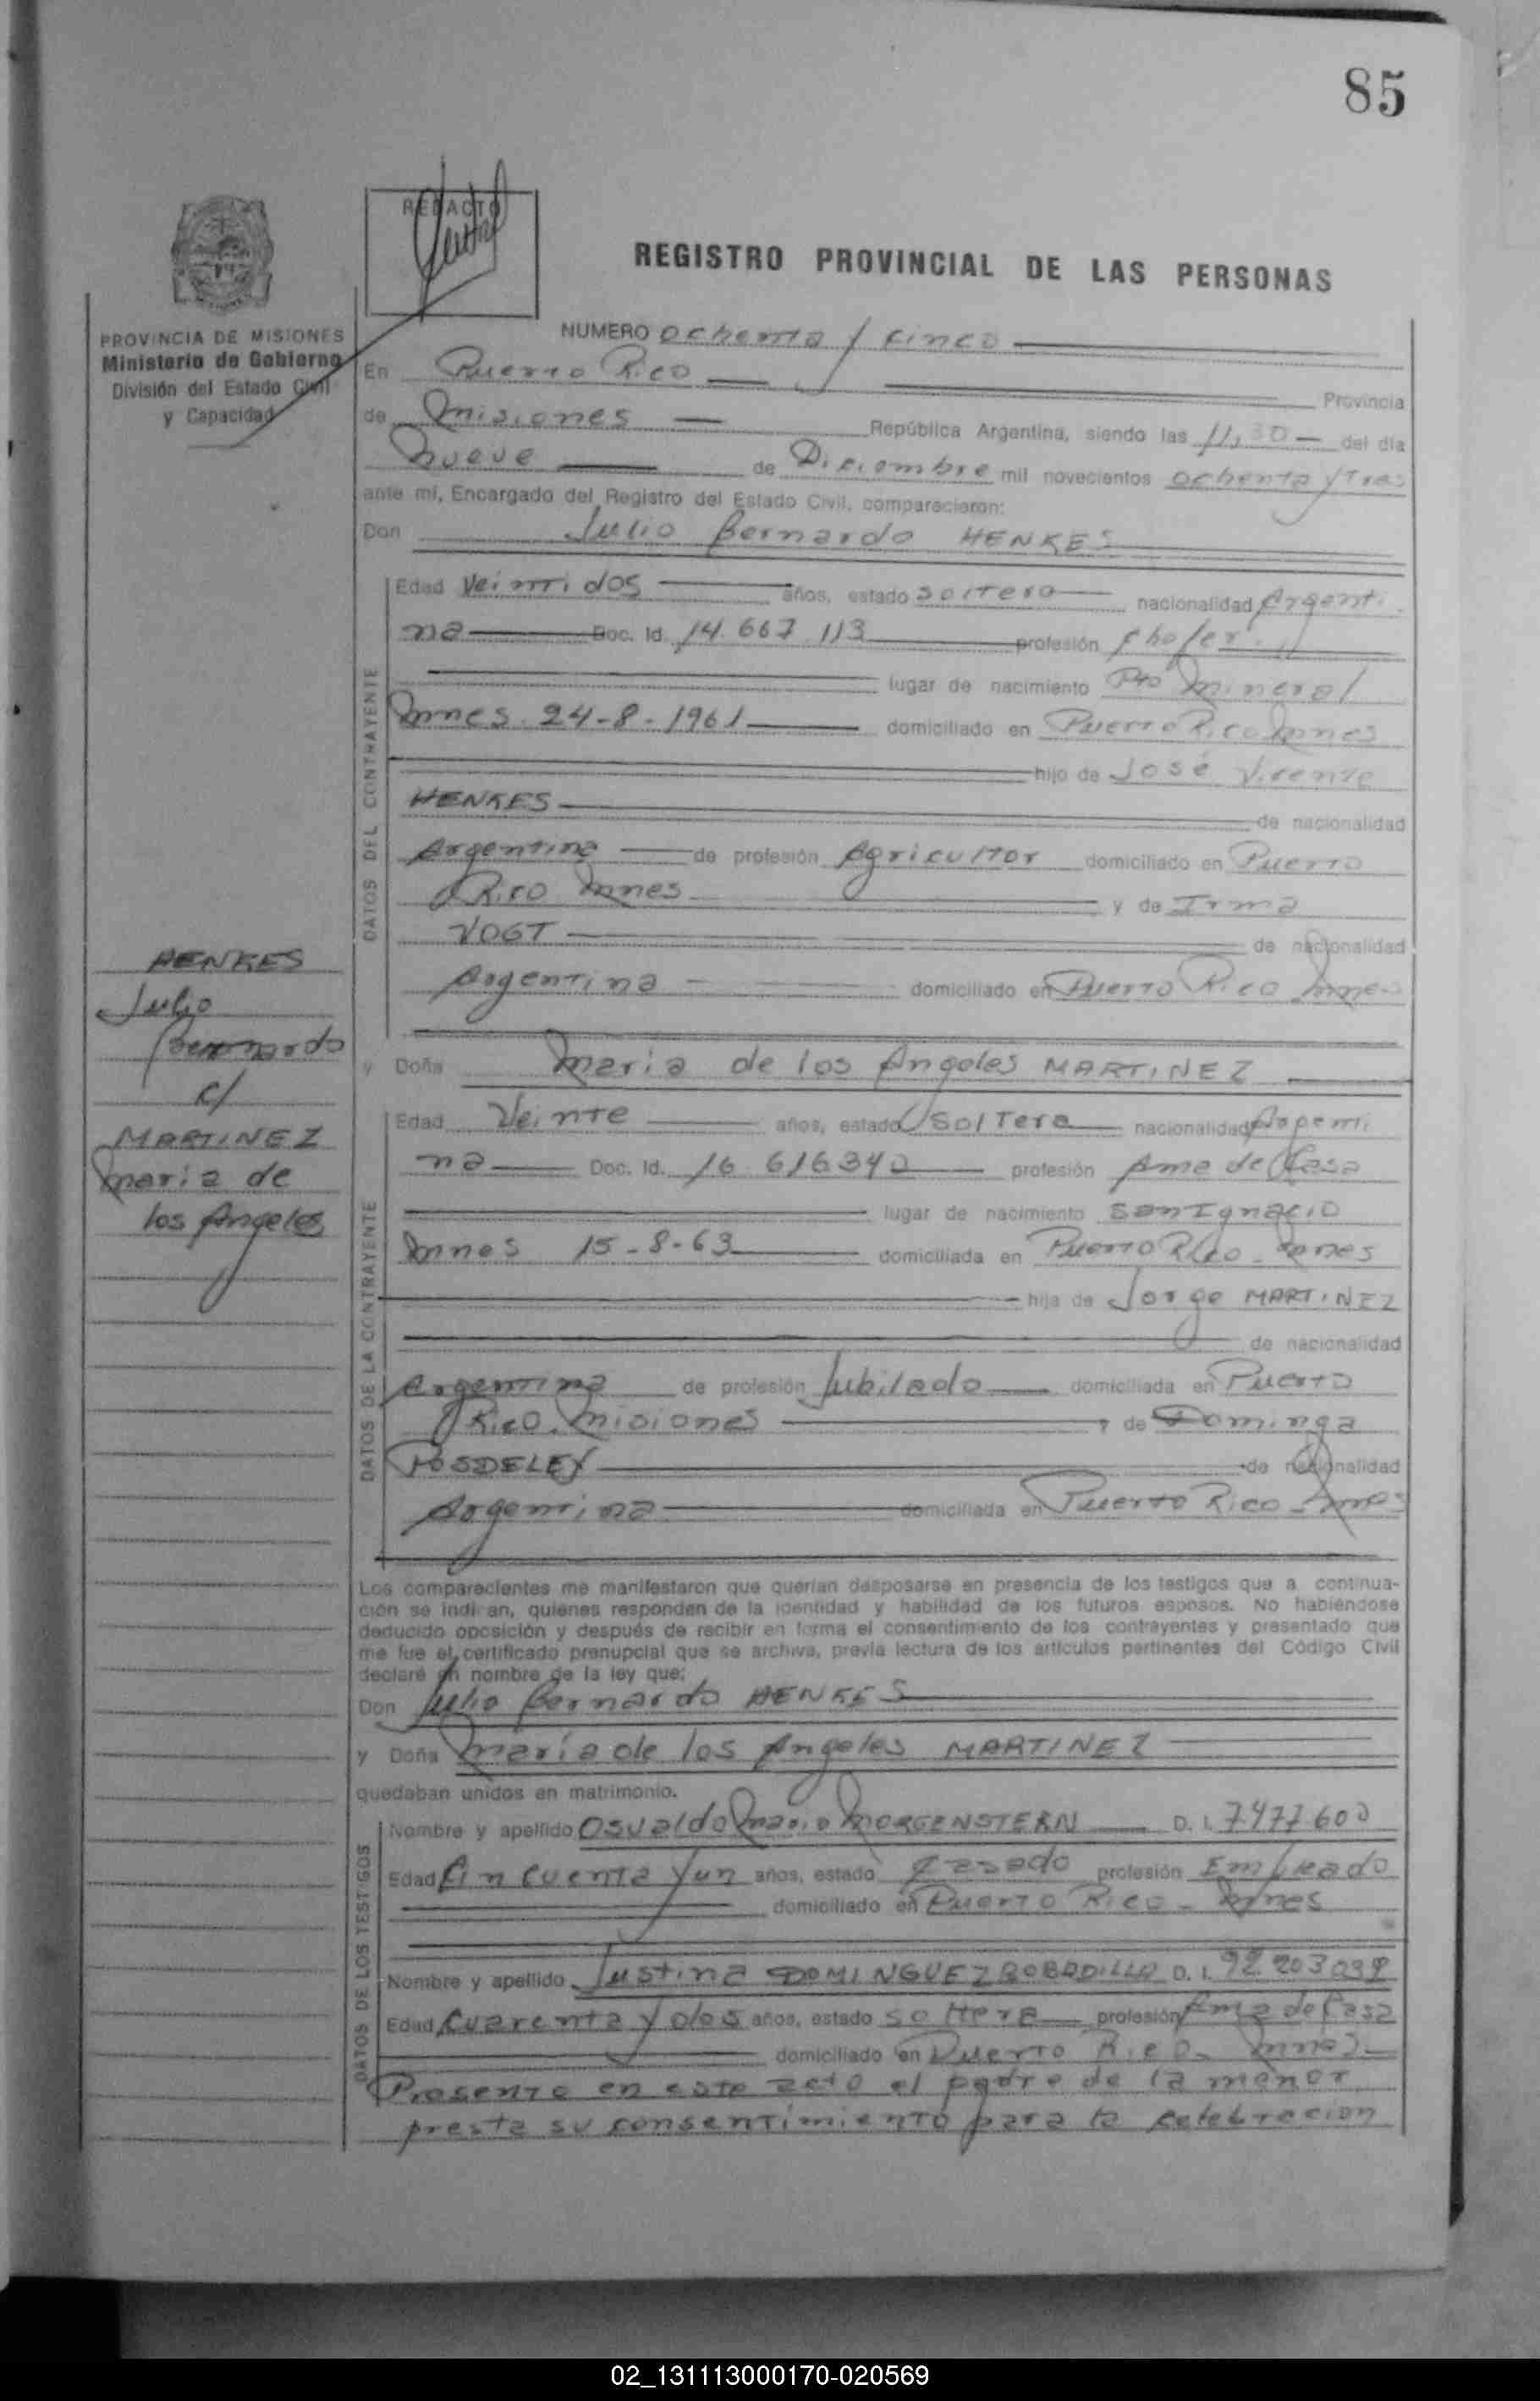 85
REDACTO
REGISTRO PROVINCIAL DE LAS PERSONAS
PROVINCIA DE MISIONES
Ministerio de Gobierno
División del Estado Civil
y Capacidad
NUMERO ochenta y cinco
En Puerto Rico Provincia
de Misiones República Argentina, siendo las 11,30 del día
nueve de Diciembre mil novecientos ochenta y tres
ante mí, Encargado del Registro del Estado Civil, comparecieron:
Don Julio Bernardo HENKES
DATOS DEL CONTRAYENTE
Edad Veintidos años, estado soltero nacionalidad Argenti
na Doc. Id. 14.667.113 profesión chofer
lugar de nacimiento Pto Mineral
Mnes. 24-8-1961 domiciliado en Puerto Rico Mnes
hijo de José Vicente
HENKES de nacionalidad
Argentina de profesión Agricultor domiciliado en Puerto
Rico Mnes y de Irma
VOGT de nacionalidad
Argentina domiciliado en Puerto Rico Mnes
HENKES
Julio
Bernardo
c/
MARTINEZ
Maria de
los Angeles
y Doña Maria de los Angeles MARTINEZ
DATOS DE LA CONTRAYENTE
Edad Veinte años, estado Soltera nacionalidad Argenti
na Doc. Id. 16.616340 profesión Ama de Casa
lugar de nacimiento San Ignacio
Mnes 15-8-63 domiciliada en Puerto Rico - Mnes
hija de Jorge MARTINEZ
de nacionalidad
Argentina de profesión Jubilado domiciliada en Puerto
Rico. Misiones y de Dominga
POSDELEY de nacionalidad
Argentina domiciliada en Puerto Rico - Mnes
Los comparecientes me manifestaron que querían desposarse en presencia de los testigos que a continua-
ción se indican, quienes responden de la identidad y habilidad de los futuros esposos. No habiéndose
deducido oposición y después de recibir en forma el consentimiento de los contrayentes y presentado que
me fue el certificado prenupcial que se archiva, previa lectura de los artículos pertinentes del Código Civil
declaré en nombre de la ley que:
Don Julio Bernardo HENKES
y Doña María de los Angeles MARTINEZ
quedaban unidos en matrimonio.
DATOS DE LOS TESTIGOS
Nombre y apellido Osvaldo Mario MORGENSTERN D. I. 7.477.600
Edad Cincuenta y un años, estado casado profesión Empleado
domiciliado en Puerto Rico - Mnes
Nombre y apellido Justina DOMINGUEZ BOBADILLA D. I. 92.203.039
Edad Cuarenta y dos años, estado soltera profesión Ama de Casa
domiciliado en Puerto Rico - Mnes
Presente en este acto el padre de la menor
presta su consentimiento para la celebracion
02_131113000170-020569